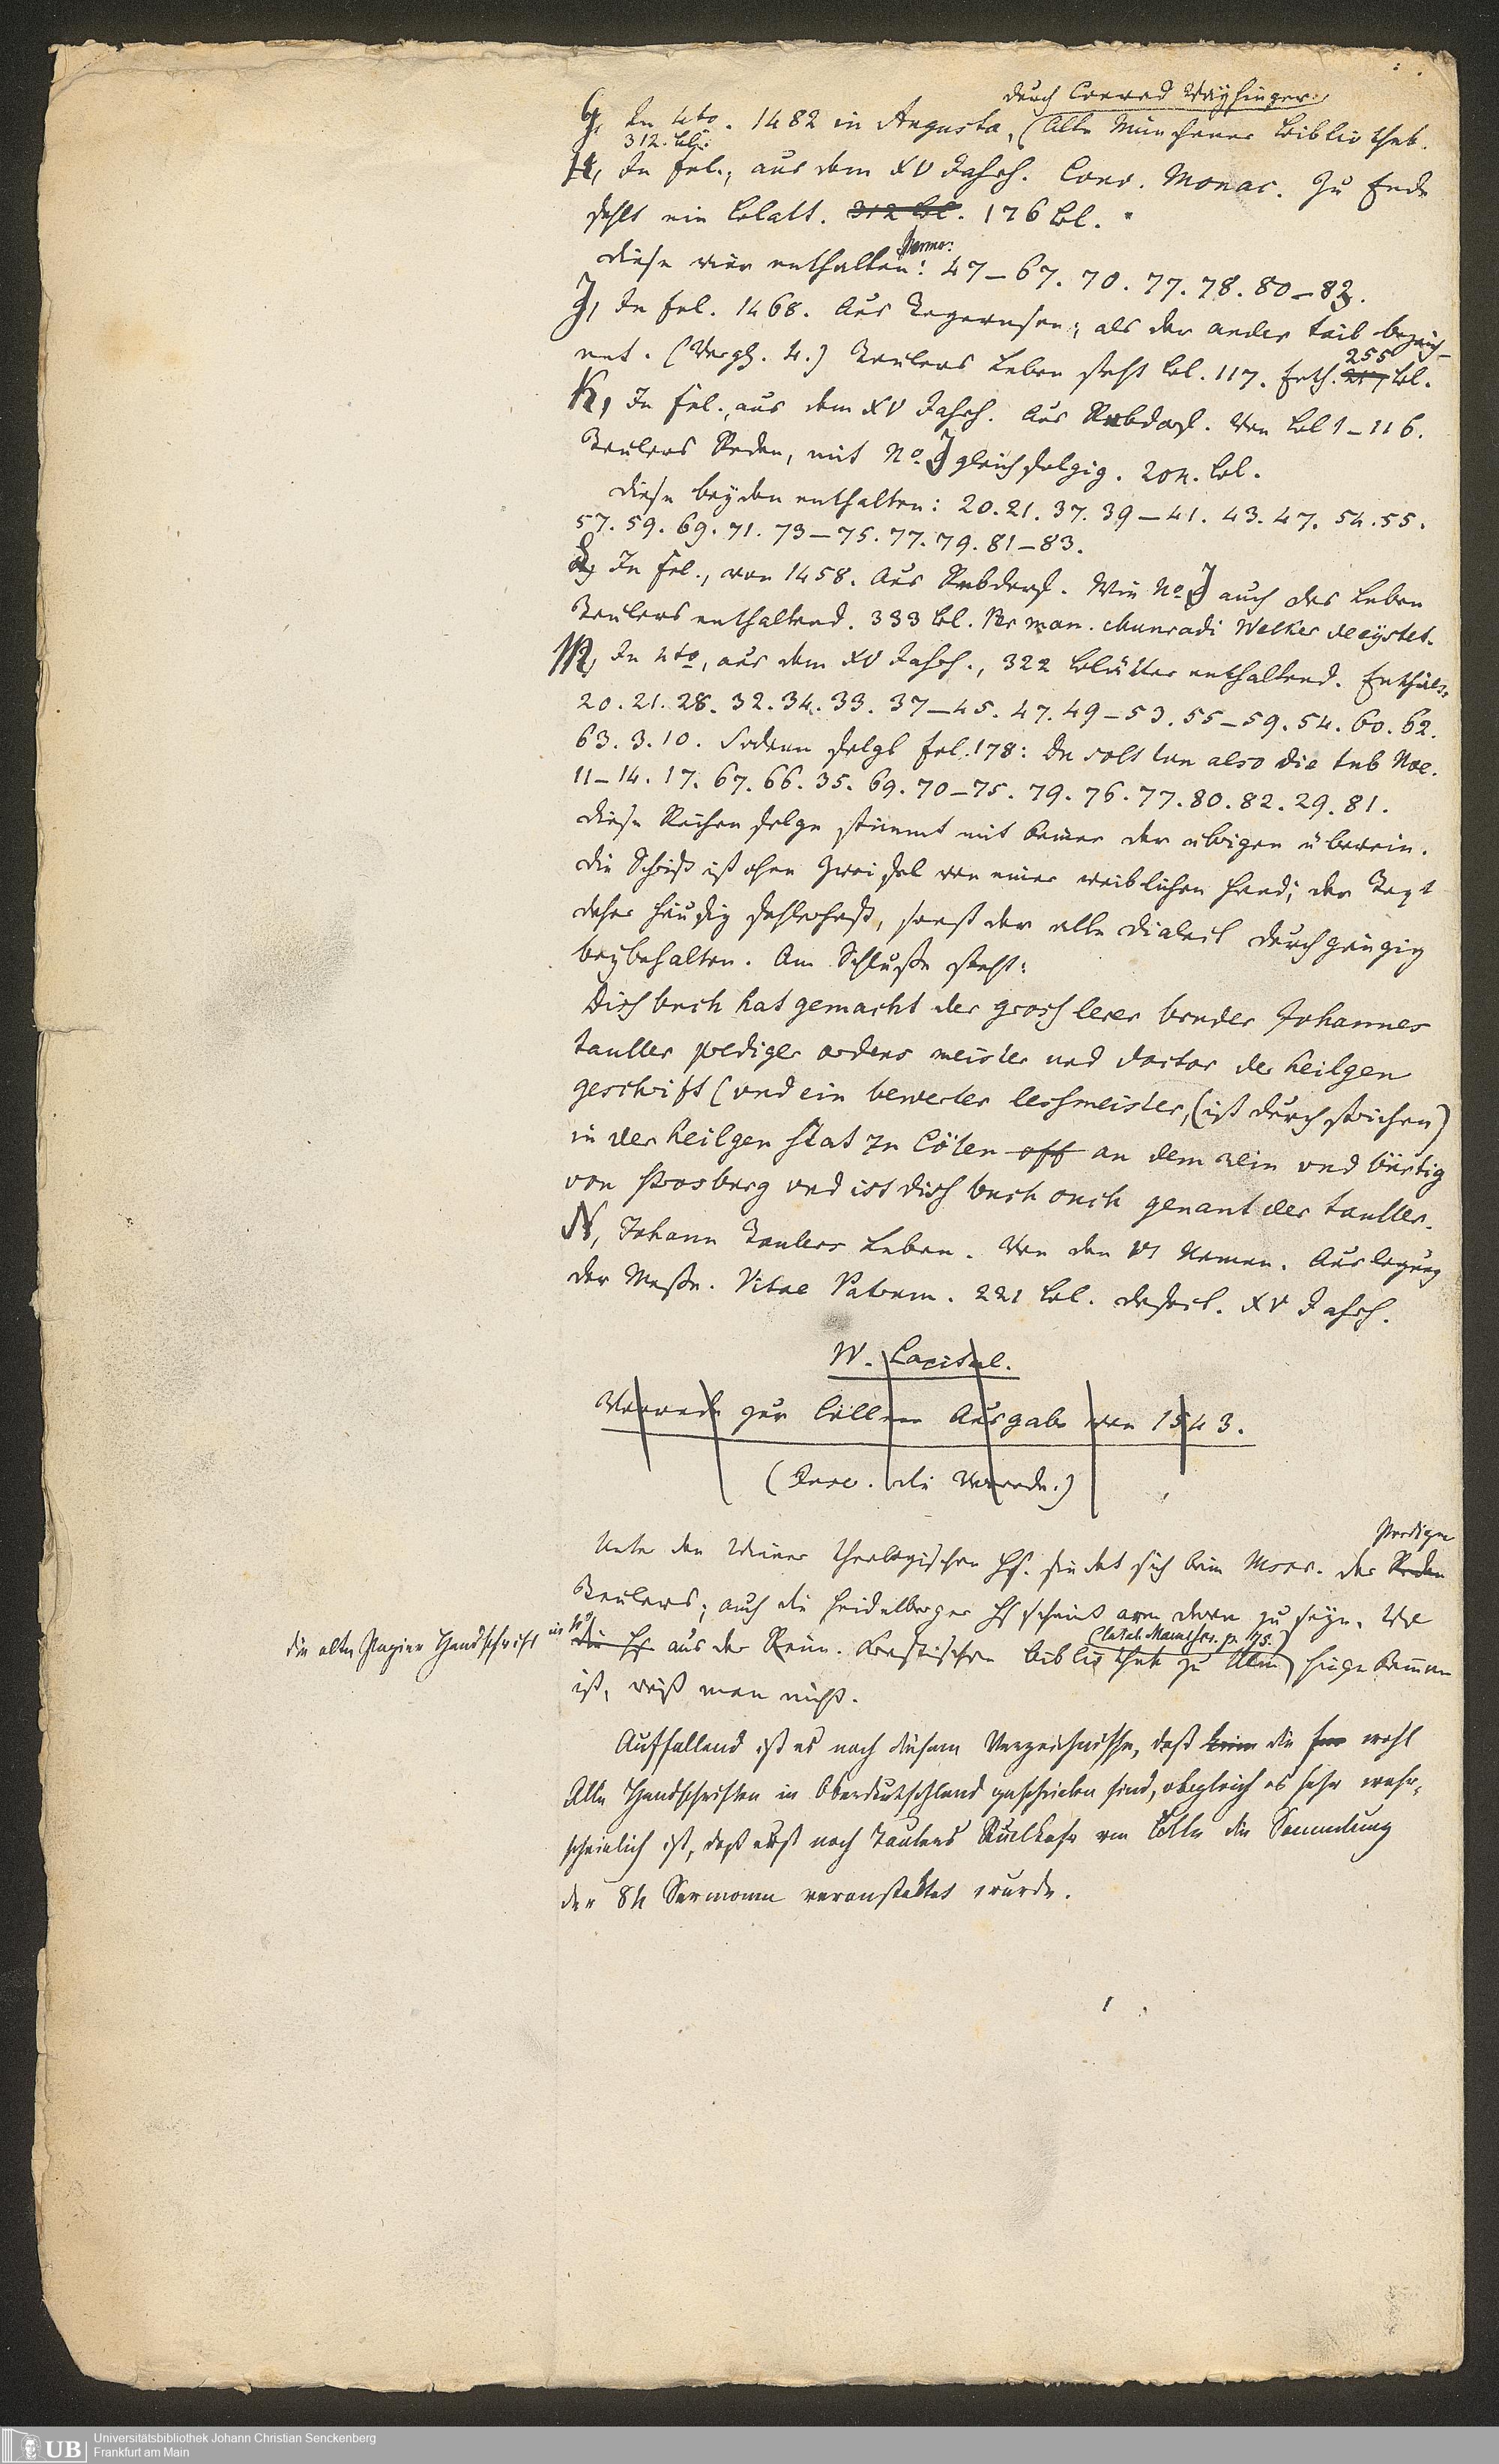 durch Conrad Wayhinger
G, In 4to. 1482 in Augusta, (Alte Münchener Bibliothek.
312. Bl.
H, In fol., aus dem XV Jahrh. Conv. Monac. Zu Ende
fehlt ein Blatt. 312 Bl. 176 Bl.
Sermo:
Diese vier enthalten: 47–67. 70. 77. 78. 80–83.
J, In fol. 1468. Aus Tegernsee; als der ander tail bezeich-
net. (Vergl. 4.) Taulers Leben steht Bl. 117. Enth. 217 255 Bl.
K, In fol., aus dem XV Jahrh. Aus Rebdorf. Von Bl 1–116.
Taulers Reden, mit No. J gleichfolgig. 204. Bl.
Diese beyden enthalten: 20. 21. 37. 39–41. 43. 47. 54. 55.
57. 59. 69. 71. 73–75. 77. 79. 81–83.
L, In fol., von 1458. Aus Rebdorf. Wie No. J auch das Leben
Taulers enthaltend. 333 Bl. Per man. Chunradi Welker de eystet.
M, In 4to, aus dem XV Jahrh., 322 Blätter enthaltend. Enthält:
20. 21. 28. 32. 34. 33. 37–45. 47. 49–53. 55–59. 54. 60. 62.
63. 3. 10. Sodann folgt fol. 178: Du solt tun also die tub Noe.
11–14. 17. 67. 66. 35. 69. 70–75. 79. 76. 77. 80. 82. 29. 81.
Diese Reihenfolge stimmt mit keiner der übrigen überein.
Die Schrift ist ohne Zweifel von einer weiblichen Hand; der Text
daher häufig fehlerhaft, sonst der alte Dialect durchgängig
beybehalten. Am Schluße steht:
Disch buch hat gemacht der grosch lerer bruder Johannes
tauller prediger ordens meister und doctor der heilgen
geschrift (und ein bewerter leschmeister, (ist durchstrichen)
in der heilgen stat zu Cölen off an dem rein und bürtig
von strosburg und ist disch buch ouch genant der tauller.
N, Johann Taulers Leben. Von den VI Namen. Auslegung
der Messe. Vitae Patrum. 221 Bl. defect. XV Jahrh.
IV. Capitel.
Vorrede zur Cöllner Ausgabe von 1543.
(Inse. die Vorrede.)
Predigen
Unter den Wiener theologischen Hs. findet sich kein Mscr. der Reden
Taulers; auch die Heidelberger Hs scheint arm daran zu seyn. Wo
die alte Papier Handschrift in 4o
(Catal. Manuscr. p. 175.)
die Hs aus der Raim. Krafftischen Bibliothek zu Ulm hingekommen
ist, weiß man nicht.
Auffallend ist es nach diesem Verzeichnisse, daß kein die wohl
Alle Handschriften in Oberdeutschland geschrieben sind, obgleich es sehr wahr-
scheinlich ist, daß erst nach Taulers Rückkehr von Cölln die Sammlung
der 84 Sermonen veranstaltet wurde.
UB Universitätsbibliothek Johann Christian Senckenberg
Frankfurt am Main